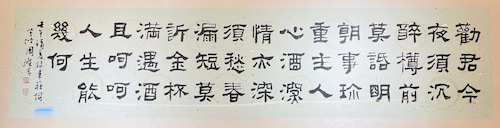 勸君今
夜須沉
醉樽前
莫話明
朝事珍
重主人
心酒深
情亦深
須愁春
漏短莫
訴金杯
滿遇酒
且呵呵
人生能
幾何